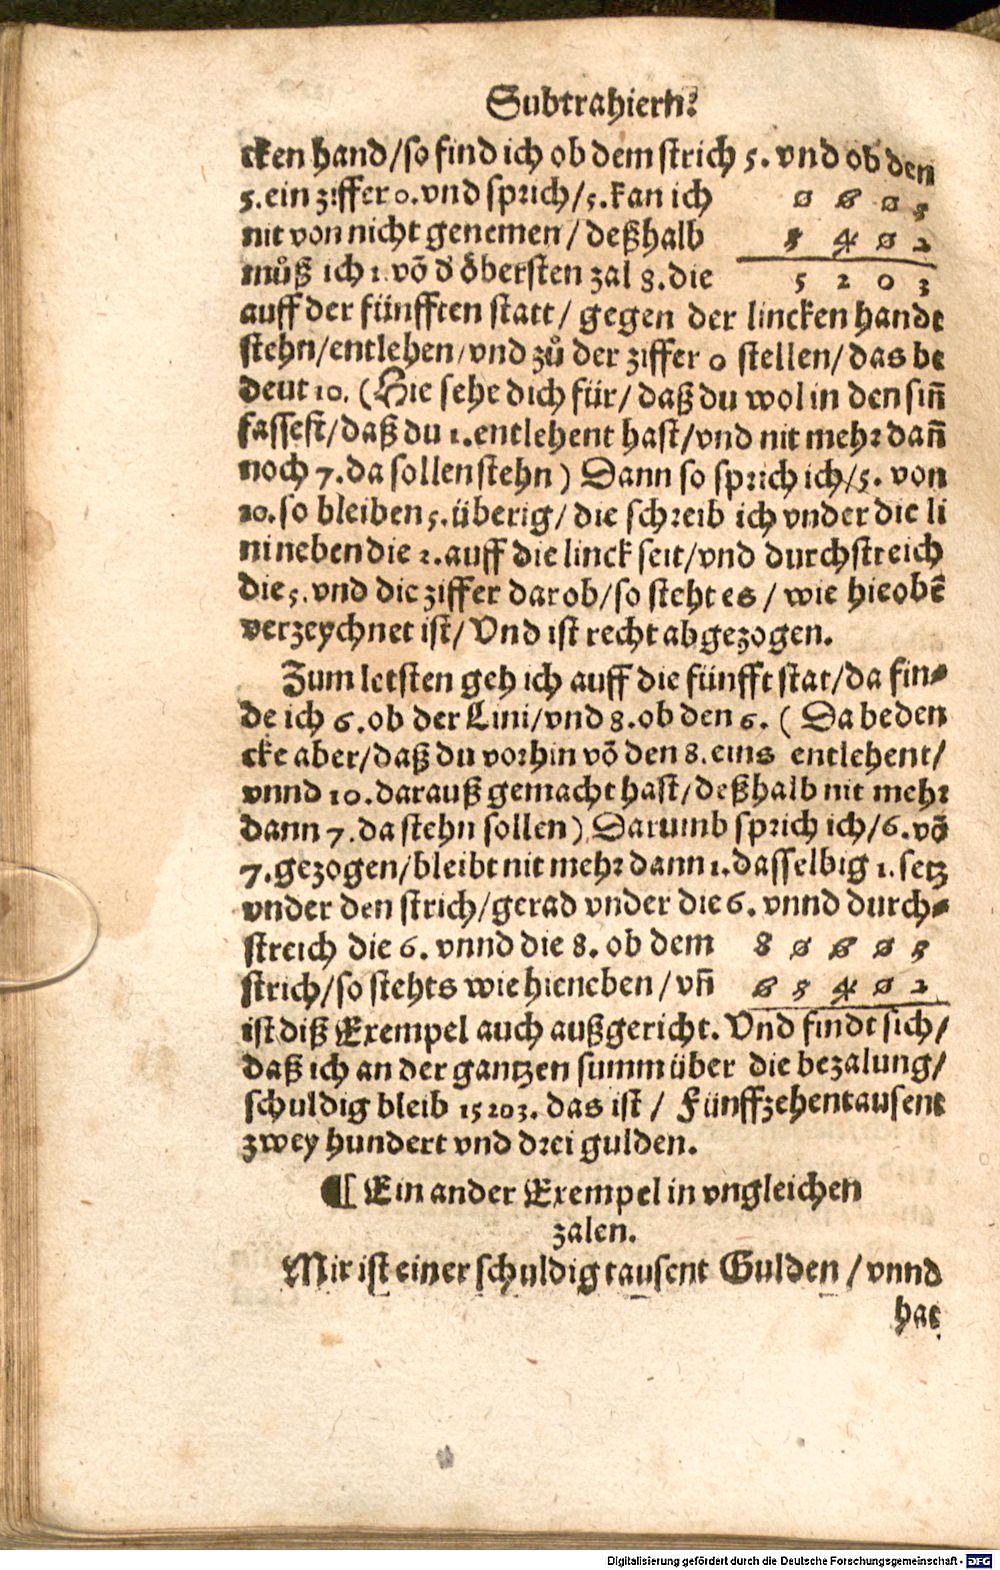 Subtrahiern.
cken hand/so find ich ob dem strich 5. vnd ob den
5. ein ziffer 0. vnd sprich/5. kan ich 0 6 0 5
nit von nicht genemen/deßhalb 5 4 0 2
můß ich 1. võ d öbersten zal 8. die 5 2 0 3
auff der fünfften statt/ gegen der lincken handt
stehn/entlehen/vnd zů der ziffer 0 stellen/das be
deut 10. (Hie sehe dich für/daß du wol in den siñ
fassest/daß du 1. entlehent hast/vnd nit mehr dañ
noch 7. da sollen stehn) Dann so sprich ich/5. von
10. so bleiben 5. überig/ die schreib ich vnder die li
ni neben die 2. auff die linck seit/vnd durchstreich
die 5. vnd die ziffer darob/so steht es/ wie hieobẽ
verzeychnet ist/ Vnd ist recht abgezogen.
Zum letsten geh ich auff die fünfft stat/da fin-
de ich 6. ob der Lini/vnd 8. ob den 6. (Da beden
cke aber/daß du vorhin võ den 8. eins entlehent/
vnnd 10. darauß gemacht hast/deßhalb nit mehr
dann 7. da stehn sollen) Darumb sprich ich/6. võ
7. gezogen/bleibt nit mehr dann 1. dasselbig 1. setz
vnder den strich/gerad vnder die 6. vnnd durch-
streich die 6. vnnd die 8. ob dem 8 0 6 0 5
strich/so stehts wie hieneben/vñ 6 5 4 0 2
ist diß Exempel auch außgericht. Vnd findt sich/
daß ich an der gantzen summ über die bezalung/
schuldig bleib 15203. das ist / Fünffzehentausent
zwey hundert vnd drei gulden.
¶ Ein ander Exempel in vngleichen
zalen.
Mir ist einer schuldig tausent Gulden/vnnd
hat
Digitalisierung gefördert durch die Deutsche Forschungsgemeinschaft - DFG